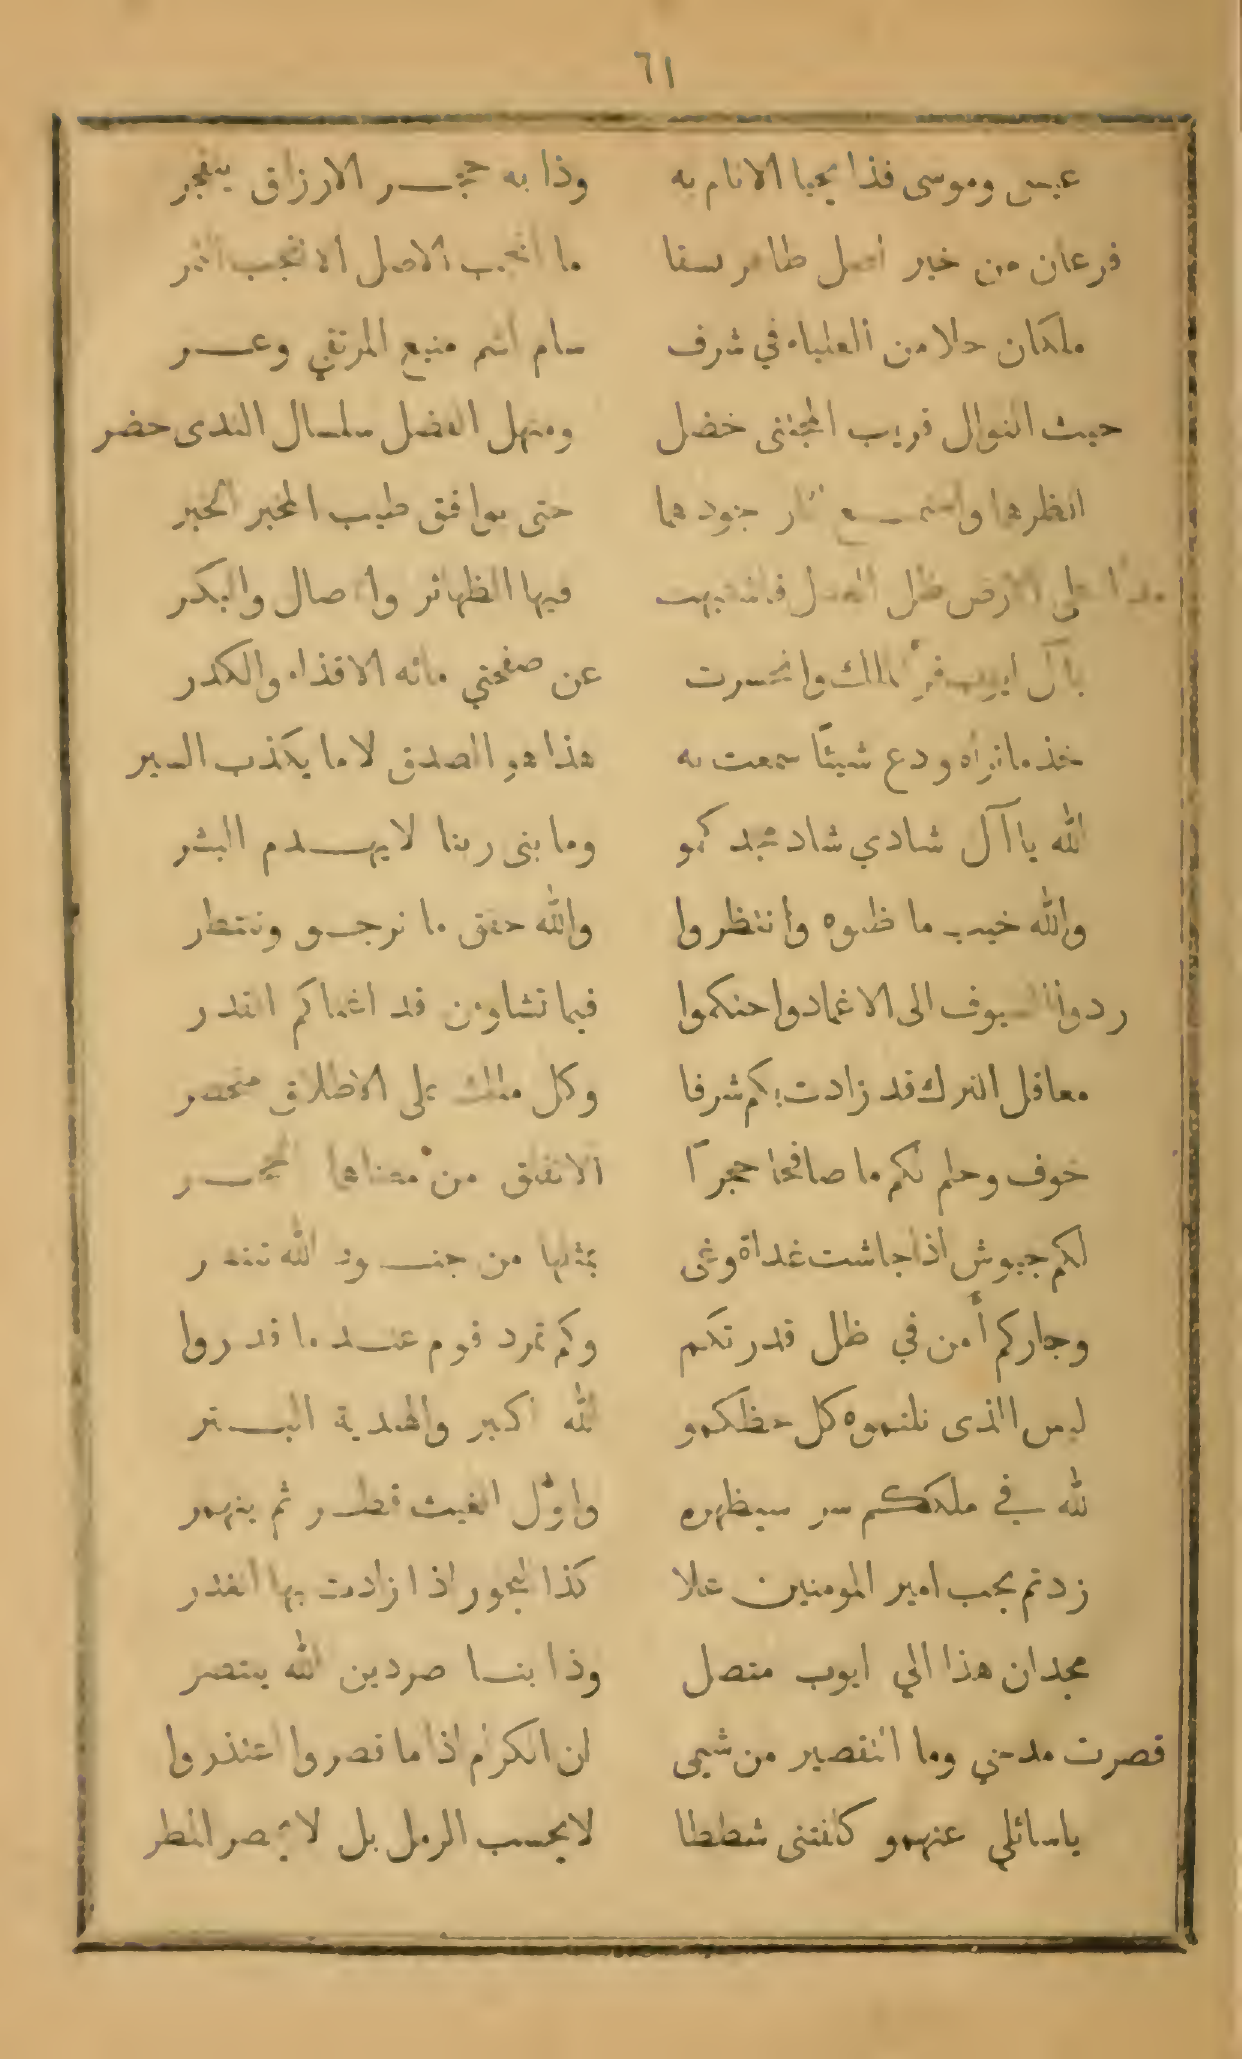 ٦١
عيسى وموسى فذا يحيا الانام به وذا به حجر الارزاق ينفجر
فرعان من خير اصل طاهر سقا ما انجب الاصل الا انجب الثمر
ملكان حلا من العلياء في شرف سام اشم منيع المرتقي وعر
حيث النوال قريب المجتنى خضل ومنهل الفضل سلسال الندى خضر
انظرهما واستمع جودهما حتى يوافق طيب المخبر الخبر
على الارض ظل العدل فاشتبهت فيها الظهائر والاصال والبكر
باآل ايوب قر الملك وانحسرت عن صفحتي مائه الاقذاء والكدر
خذ ما تراه ودع شيئا سمعت به هذا هو الصدق لا ما يكذب السير
الله يا آل شادي شاد مجدكمو وما بنى ربنا لا يهدم البشر
والله خيب ما ظنوه وانتظروا والله حقق ما نرجو وننتظر
ردوا السيوف الى الاغماد واحتكموا فيما تشاون قد اغناكم القدر
معاقل الترك قد زادت بكم شرفا وكل ملك على الاطلاق منحصر
خوف وحلم لكم ما صافحا حجرا الا نفلق من معناهما الحجر
لكم جيوش اذا جاشت غداة وغى بمثلها من جنود الله تنتدر
وجاركم أمن في ظل قدرتكم وكم تمرد قوم عند ما قدروا
ليس الذى نلتموه كل حظكمو الله اكبر والهدية البتر
لله في ملككم سر سيظهره واول الغيث قطر ثم ينهمر
زدتم بحب امير المومنين علا كذا البحور اذا زادت بها الغدر
مجدان هذا الي ايوب متصل وذا بناصر دين الله ينتصر
قصرت مدحي وما التقصير من شيمى لان الكرام اذا ما قصروا اعتذروا
ياسائلي عنهمو كلفتنى شططا لا يحسب الرمل بل لا يحصر المطر